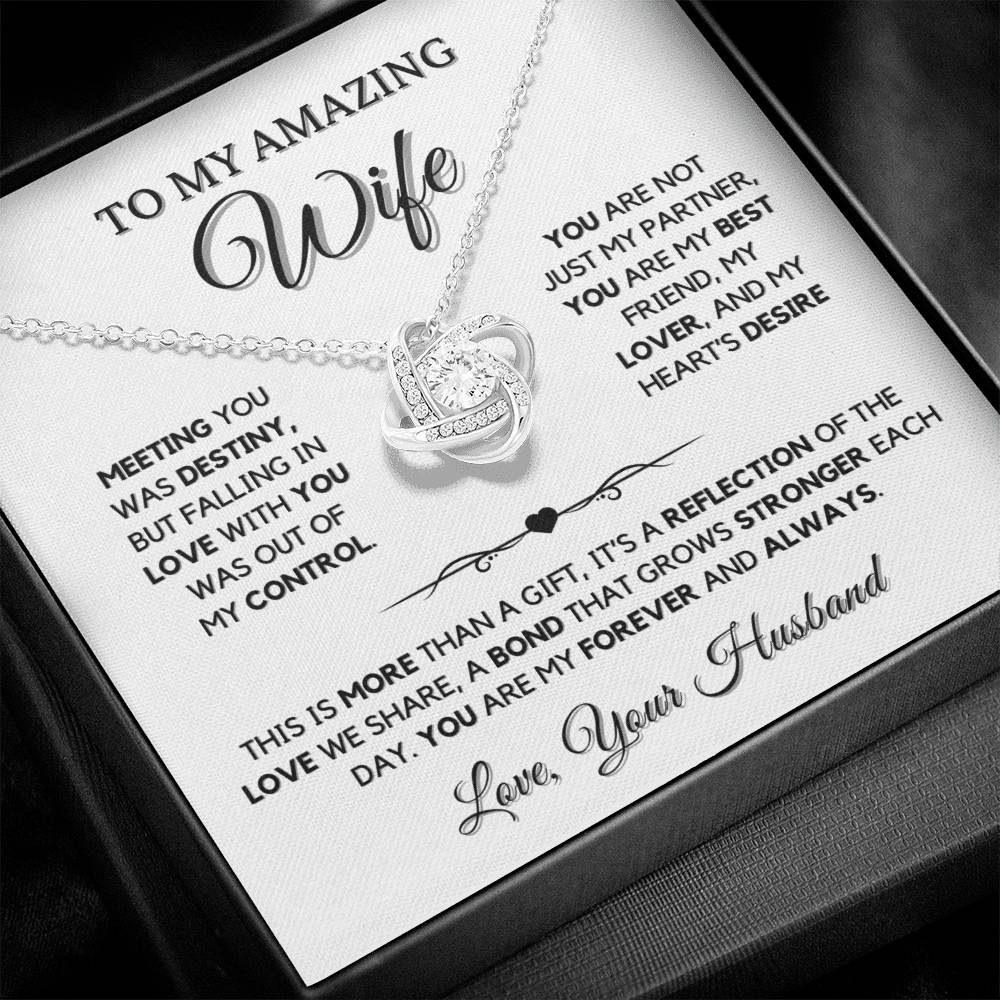 TO MY AMAZING
Wife
MEETING YOU
WAS DESTINY,
BUT FALLING IN
LOVE WITH YOU
WAS OUT OF
MY CONTROL.
YOU ARE NOT
JUST MY PARTNER,
YOU ARE MY BEST
FRIEND, MY
LOVER, AND MY
HEART'S DESIRE
THIS IS MORE THAN A GIFT, IT'S A REFLECTION OF THE
LOVE WE SHARE, A BOND THAT GROWS STRONGER EACH
DAY. YOU ARE MY FOREVER AND ALWAYS.
Love, Your Husband